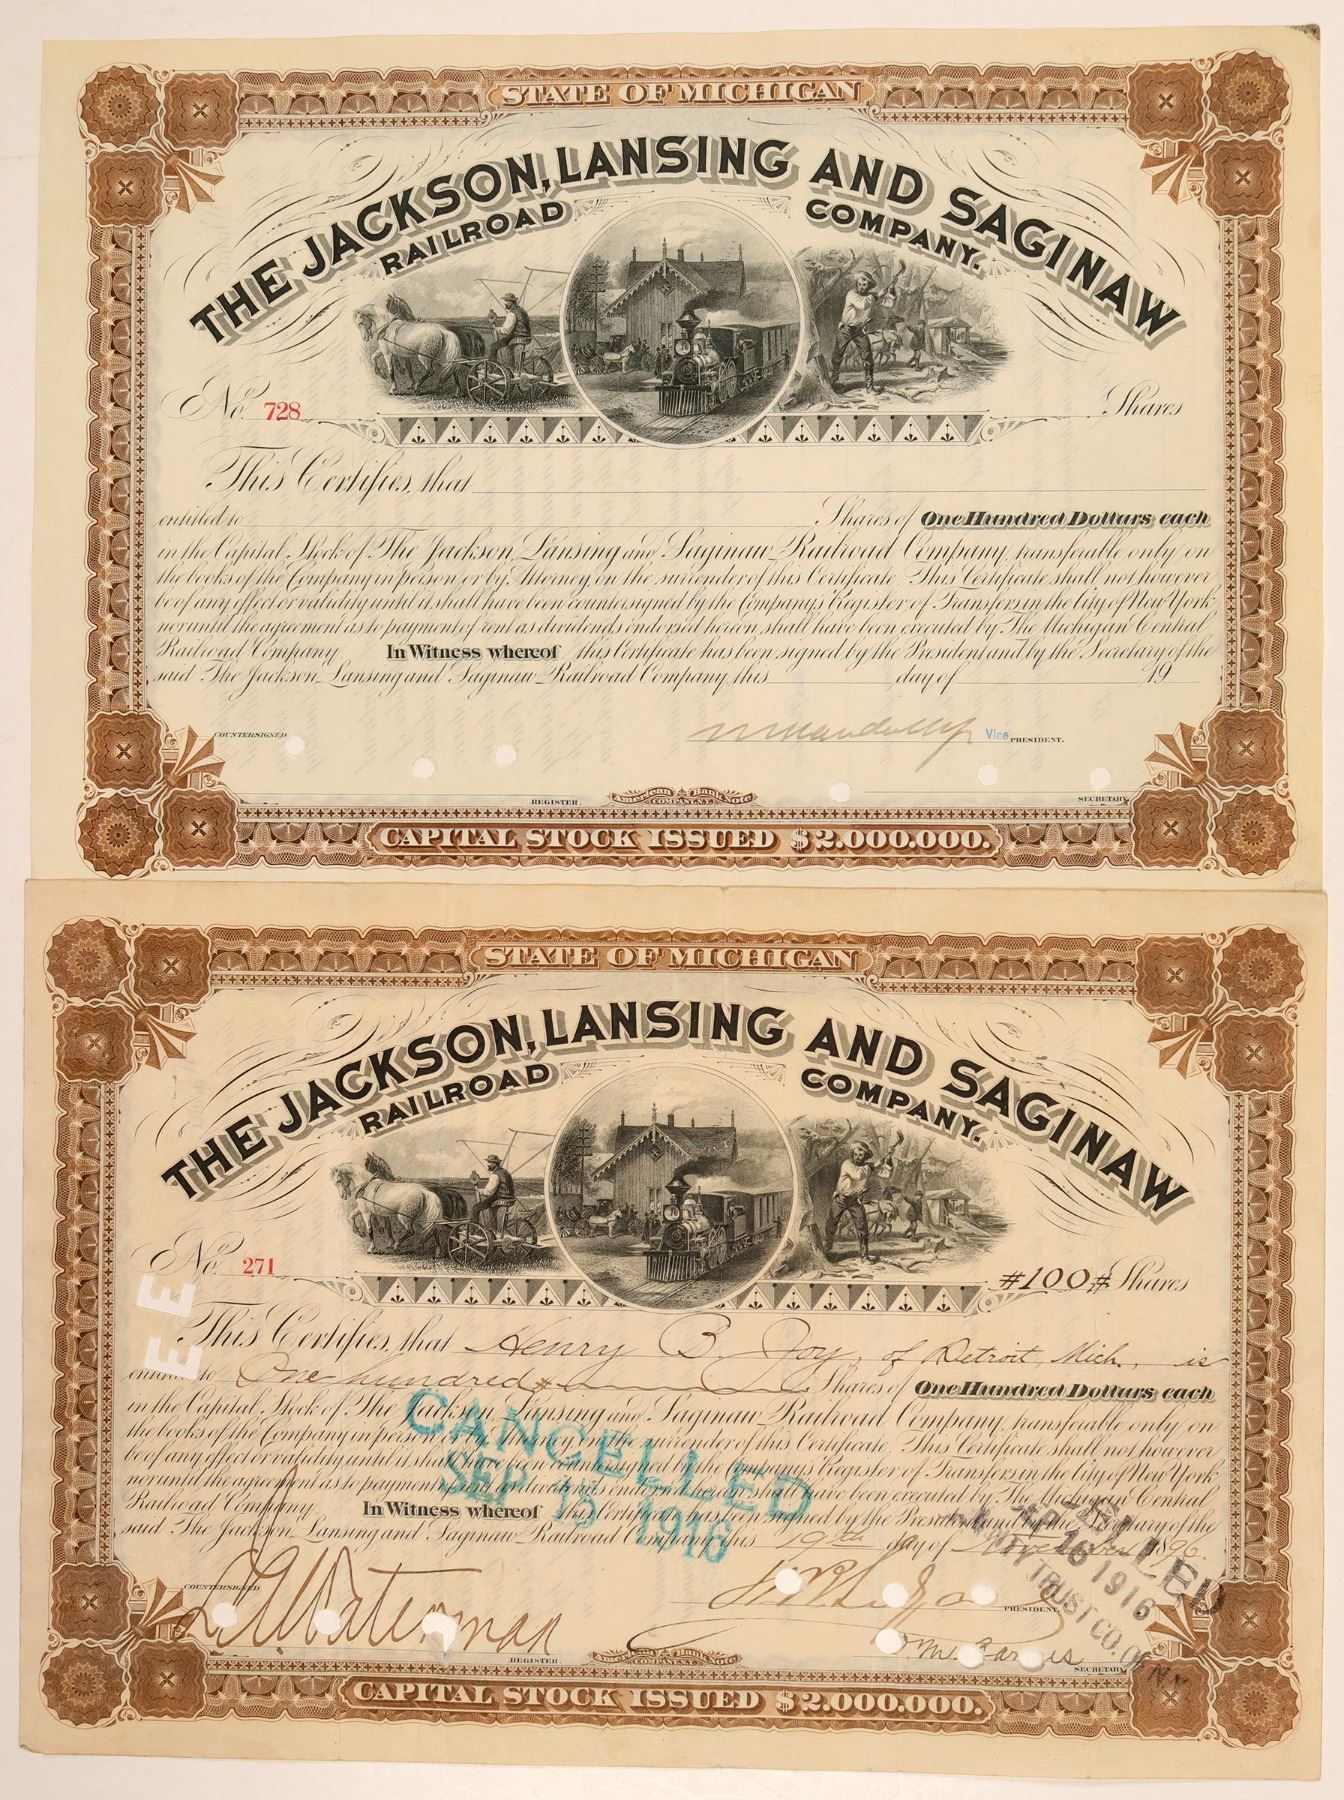 STATE OF MICHIGAN
THE JACKSON, LANSING AND SAGINAW
RAILROAD COMPANY.
No. 728 Shares
This Certifies, that
entitled to Shares of One Hundred Dollars each
in the Capital Stock of The Jackson, Lansing and Saginaw Railroad Company, transferable only on
the books of the Company in person or by Attorney, on the surrender of this Certificate. This Certificate shall not however
be of any effect or validity until it shall have been countersigned by the Company's Register of Transfers in the City of New York,
nor until the agreement as to payment of rent as dividends endorsed hereon, shall have been executed by The Michigan Central
Railroad Company. In Witness whereof this Certificate has been signed by the President and by the Secretary of the
said The Jackson, Lansing and Saginaw Railroad Company, this day of 19
COUNTERSIGNED
Vice PRESIDENT.
REGISTER. American Bank Note COMPANY N.Y. SECRETARY
CAPITAL STOCK ISSUED $2.000.000.
STATE OF MICHIGAN
THE JACKSON, LANSING AND SAGINAW
RAILROAD COMPANY.
No. 271 #100# Shares
This Certifies, that Henry B. Joy, of Detroit, Mich., is
entitled to One hundred Shares of One Hundred Dollars each
in the Capital Stock of The Jackson, Lansing and Saginaw Railroad Company, transferable only on
the books of the Company in person or by Attorney, on the surrender of this Certificate. This Certificate shall not however
be of any effect or validity until it shall have been countersigned by the Company's Register of Transfers in the City of New York,
nor until the agreement as to payment of rent as dividends endorsed hereon, shall have been executed by The Michigan Central
Railroad Company. In Witness whereof this Certificate has been signed by the President and by the Secretary of the
said The Jackson, Lansing and Saginaw Railroad Company, this 19th day of November 1896.
CANCELLED
SEP 15 1916
COUNTERSIGNED
PRESIDENT
REGISTER. American Bank Note COMPANY N.Y. SECRETARY
16 1916
TRUST CO. OF N.Y.
CAPITAL STOCK ISSUED $2.000.000.